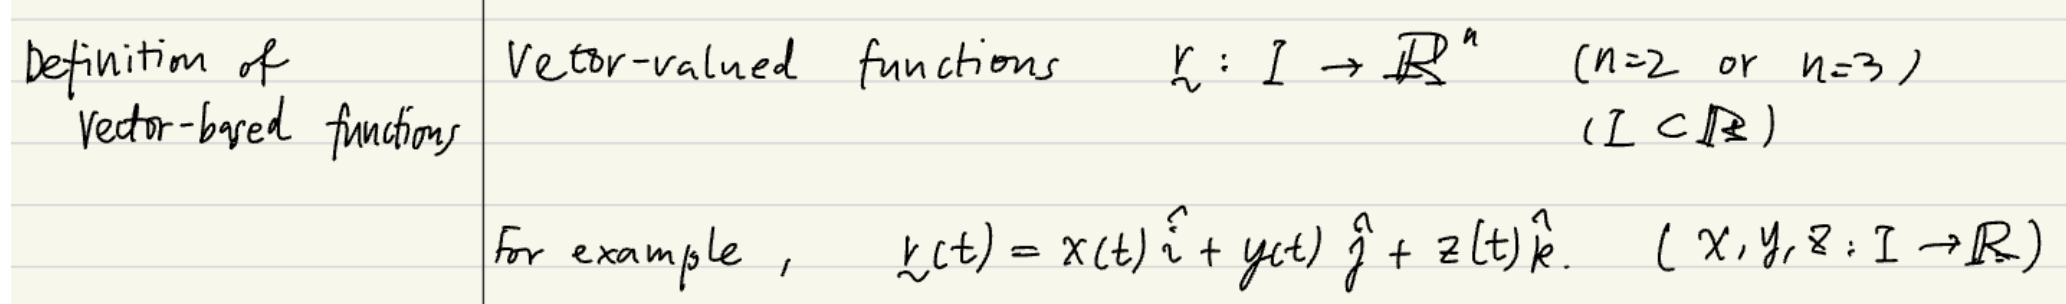 Definition of
vector-based functions
Vetor-valued functions r̰ : I → ℝⁿ (n=2 or n=3)
(I ⊂ ℝ)
For example, r̰(t) = x(t) î + y(t) ĵ + z(t) k̂. (x, y, z : I → ℝ)